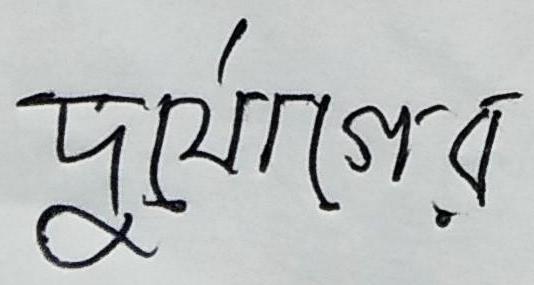 দুর্যোগের